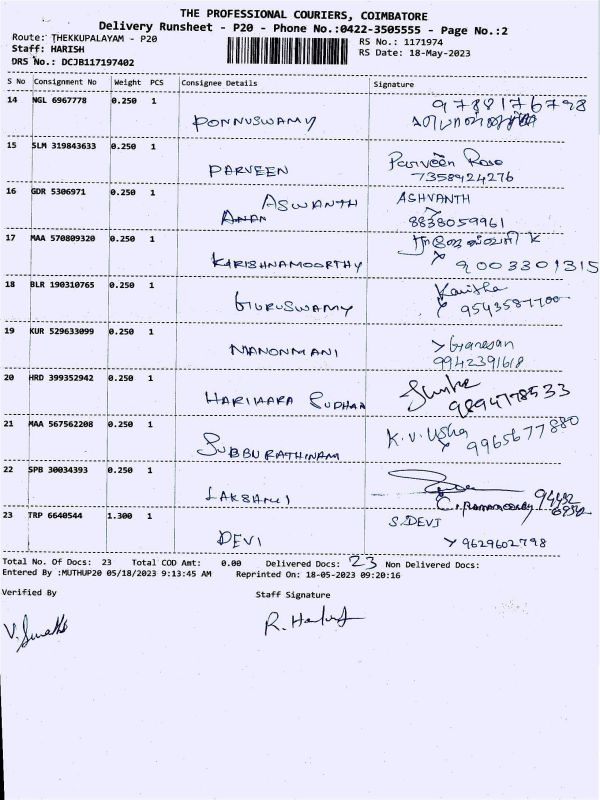 THE PROFESSIONAL COURIERS, COIMBATORE
Delivery Runsheet - P20 - Phone No.:0422-3505555 - Page No.:2
Route: THEKKUPALAYAM - P20 RS No.: 1171974
Staff: HARISH RS Date: 18-May-2023
DRS No.: DCJB117197402
S No Consignment No Weight PCS Consignee Details Signature
14 NGL 6967778 0.250 1 PONNUSWAMY 9788176798
15 SLM 319843633 0.250 1 PARVEEN Parveen Rose
7358924276
16 GDR 5306971 0.250 1 ASWANTH ASHVANTH
8838059961
17 MAA 570809320 0.250 1 KARISHNAMOORTHY K
9003301315
18 BLR 190310765 0.250 1 GURUSWAMY Kavitha
9543587700
19 KUR 529633099 0.250 1 MANONMANI Ganesan
9942391618
20 HRD 399352942 0.250 1 HARIHARA SUDHAN
9894778533
21 MAA 567562208 0.250 1 SUBBURATHINAM K.V. Usha
9965677880
22 SPB 30034393 0.250 1 LAKSHMI
23 TRP 6640544 1.300 1 DEVI S.DEVI
9629602798
Total No. Of Docs: 23 Total COD Amt: 0.00 Delivered Docs: 23 Non Delivered Docs:
Entered By :MUTHUP20 05/18/2023 9:13:45 AM Reprinted On: 18-05-2023 09:20:16
Verified By Staff Signature